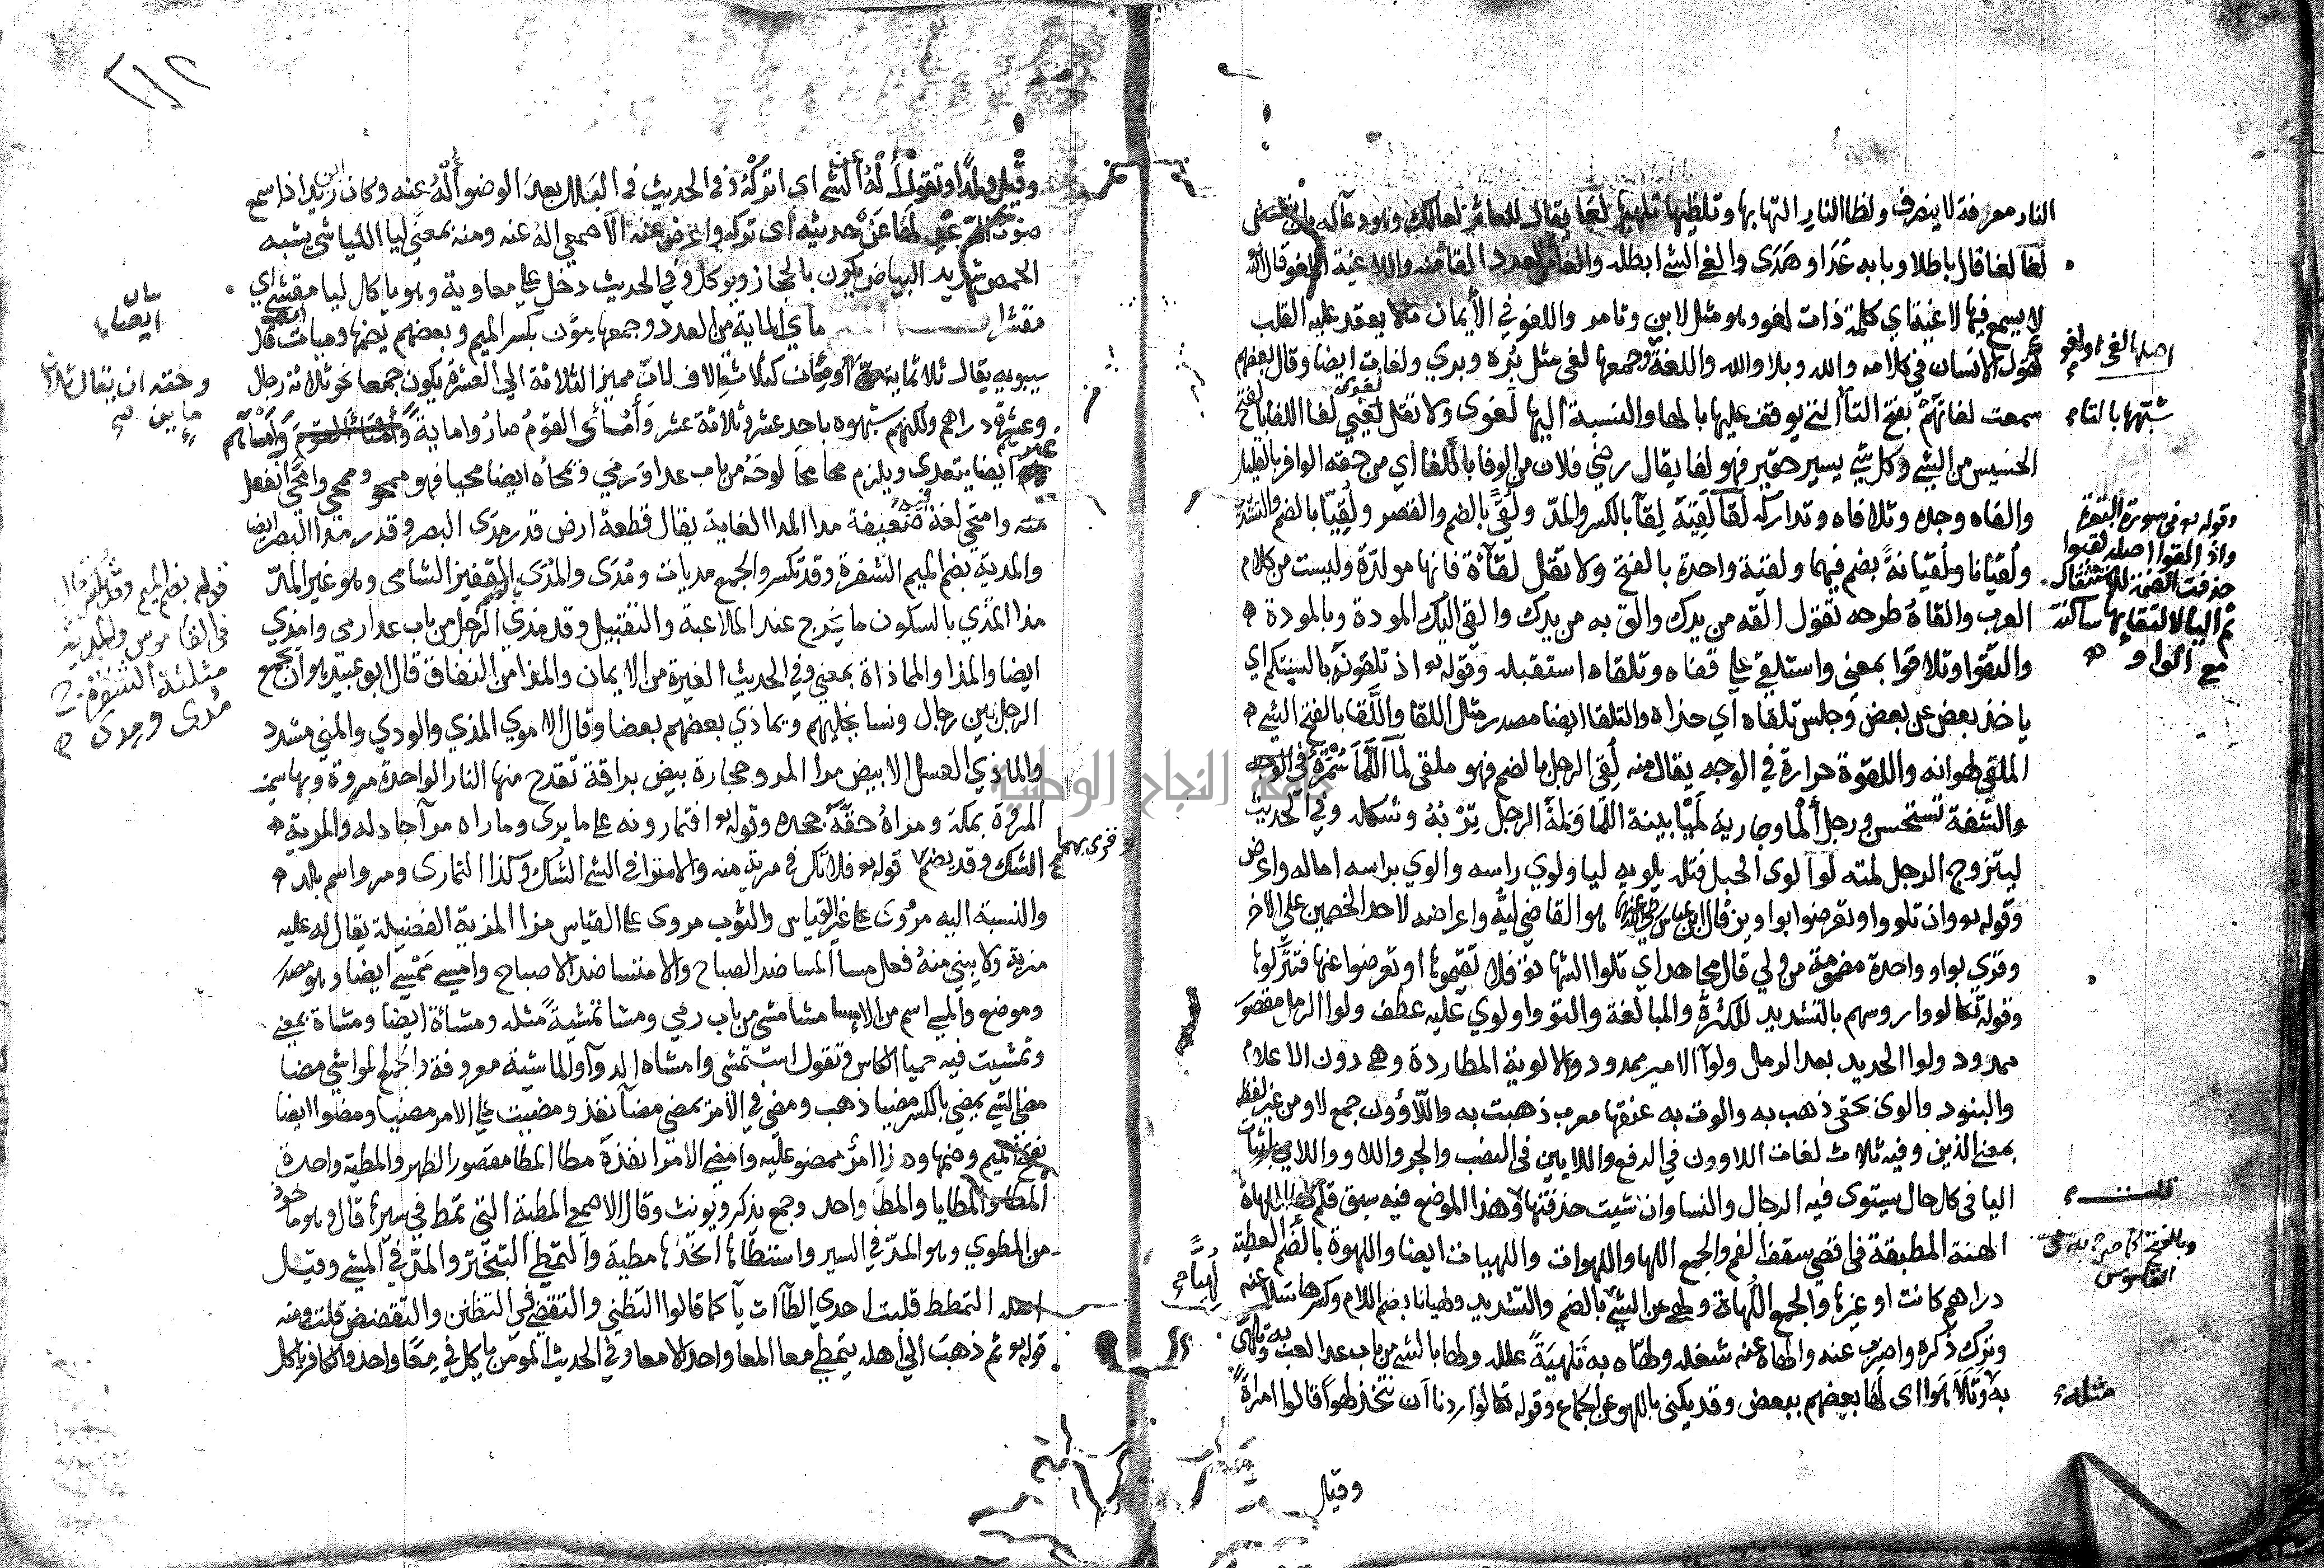 النار معرفة لا ينصرف ولظا النار التهابها وتلظيها تلهبها لعا يقال للعاثر لعا لك وهو دعآ له بان ينتعش
لغا لغا قال باطلا وبابه عَدَا وصَدَى والغى الشي ابطله والغاه من العدد القاه منه واللاغية اللغو قال الله
لا يسمع فيها لاغية اي كلمة ذات لغو وهو مثل لابن وتامر واللغو في الأيمان مالا يعقد عليه القلب
كقول الانسان في كلامه والله وبلا والله واللغة وجمعها لغى مثل بُرة وبري ولغات ايضا وقال بعضهم
سمعت لغاتهَم بفتح التا التي يوقف عليها بالها والنسبة اليها لُغوى ولا تقل لَغوي لفا اللفا بالفتح
الخسيس من الشي وكل شي يسير حقير فهو لفا يقال رضي فلان من الوفا باللفا اي من حقه الوافر بالقليل
والفاه وجده وتلافاه وتداركه لقا لَقِيَهُ لِقآ بالكسر والمدّ ولُقًى بالضم والقصر ولُقِيّا بالضم والتشديد
ولُقيانا ولُقيانةً بضم فيهما ولقية واحدة بالفتح ولا تقل لقآة فانها مولدّة وليست من كلام
العرب والقاهُ طرحه تقول القه من يدك والق به من يدك والقى اليك المودة وبالمودة
والتقوا وتلاقوا بمعنى واستلقى على قفاه وتلقاه استقبله وقوله تع اذ تلقونه بالسنتكم اي
ياخذ بعض عن بعض وجلس تلقاه اي حذاه والتلقا ايضا مصدر مثل اللقا واللَّقا بالفتح الشي
الملقى لهوانه واللقوة حرارة في الوجه يقال منه لُقِيَ الرجل بالضم فهو ملقى لما اللَّمَا سُمْرَة في
والشفة تستحسن ورجل ألْما وجارية لَمْيا بينة اللَّما وَلمة الرجل تِرْبهُ وشكله وفي الحديث
ليتزوج الرجل لمته لوا لوى الحبل فتله يلويه ليا ولوي راسه والوي براسه اماله واعرض
وقوله تع وان تلووا او تعرضوا بواوين قال ابن عباس رضي الله عنهما هو القاضي ليُّه واعراضه لاحد الخصمين على الاخر
وقري بواو واحدة مضمومة من ولي قال مجاهد اي تلوا الشهادة فلا تقيموها او تعرضوا عنها فتتركوها
وقوله تعا لووا روسهم بالتشديد للكثرة والمبالغة والتوا ولوي عليه عطف ولوا الرمل مقصور
ممدود ولوا الحديد بعد الرمل ولوآ الامير ممدود والالوية المطاردة وهي دون الاعلام
والبنود والوى بحقى ذهب به والوت به عنقها مغرب ذهبت به واللاؤون جمع لاو من غير لفظه
بمعنى الذين وفيه ثلاث لغات اللاوون في الرفع واللايين في النصب والجر واللاوو واللاي باثبات
اليا في كل حال يستوى فيه الرجال والنسا وان شيت حذفتها وهذا الموضع فيه سبق قلم لها اللهاة
الهنة المطبقة في اقصى سقف الفم والجمع اللها واللهوات واللهيات ايضا واللهوة بالضم العطية
دراهم كانت او غيرها والجمع اللُهاة ولهي عن الشي بالضم والتشديد ولهيانا بضم اللام وكسرها سلا عنه
وترك ذكره واضرب عنه والهاه عنه شغله ولهاه به تَلهيَةً علله ولها بالشي من باب عدا لعب به وتلهى
به وتلاهوا اى لها بعضهم ببعض وقد يكنى باللهو عن الجماع وقوله تعا لو اردنا ان نتخذ لهوا قالوا امراة
وقيل
اصلها لغي او لغو
شبهها بالتاء
وقوله تع في سورة البقرة
واذا لقوا اصله لقيوا
حذفت الضمة للاستثقال
ثم اليا لالتقايها ساكنة
مع الواو
قلت
القاموس
لُهيًّا
مثله
٢١٢
وقيل ولدًا وتقول أَلْهُ عن الشي اى اتركْهُ وفي الحديث في البَلل بعد الوضو أَلْهُ عنه وكان ابن الزبير اذا سمع
صوت الرعد لَهَا عَنْ حديثه أى تركه واعرض عنه الاصمعي الهُ عنه ومنه بمعنًى ليا الليا شي يشبه
الحمص شديد البياض يكون بالحجاز ويوكل وفي الحديث دخل على معاوية وهو ياكل ليا مقشى اي
مقشرا ماي الماية من العدد وجمعها مِؤن بكسر الميم وبعضهم يضمها وميات ايضا قال
سيبويه يقال ثلاثماية او مِئات كثلاثة الاف لان مميز الثلاثة الى العشرة يكون جمعا نحو ثلاثة رجال
وعشرة دراهم ولكنهم شبهوه باحد عشر وثلاثة عشر وَأَمْأَى القومُ صارُوا ماية وَأَمْأَاهُم
ايضا يتعدى ويلزم محا محَا لوحَهُ من باب عدا وَرَمي ومحاهُ ايضا محيا فهو ممحو وممحي وامّحى انفعل
منه وامتحى لغة ضعيفة مدا المدا الغاية يقال قطعة ارض قدر مدَى البصر وقدر مدا البصر ايضا
والمدية بضم الميم الشفرة وقد تكسر والجمع مديات ومُدَى والمُدْى القفيز الشامى وهو غير المدّ
مذا المَذْي بالسكون ما يخرج عند الملاعبة والتقبيل وقد مذي الرجل من باب عدا رمى وامذي
ايضا والمذا والمماذاة بمعنى وفي الحديث الغيرة من الايمان والمذا من النفاق قال ابو عبيد هو أن يجمع
الرجل بين رجال ونسا يخليهم ويماذي بعضهم بعضا وقال الاموي المذي والودي والمني مشدد
والماذي العسل الابيض مرا المرو حجارة بيض براقة تقدح منها النار الواحدة مروة وبها سميت
المروة بمكة ومراهُ حقهُ جحده وقوله تع افتمرونه على ما يرى وماراه مرآ جادله والمرية
الشك وقد يضم قوله تع فلا تك في مرية منه والامترا في الشي الشك وكذا التمارى ومرو اسم بلد
والنسبة اليه مروَزى على غير القياس والثوب مروى على القياس مزا المزية الفضيلة يقال له عليه
مزية ولا يبنى منهُ فعل مسا المسا ضد الصباح والامسا ضد الاصباح وامسى مُمْسى ايضا وهو مصدر
وموضع والمسي اسم من الامسا مشا مشى من باب رمي ومشا تمشيةً مثله ومشاة ايضا ومشاة بمعنى
وتمشيت فيه حميا الكاس وتقول استمشى وامشاه الدوآ والماشية معروفة والجمع المواشي مضا
مضى الشي يمضي بالكسر مضيا ذهب ومضى في الامر يمضي مضآ نفذ ومضيت على الامر مضيا ومضوا ايضا
بفتح الميم وضمها وهذا امرٌ ممضو عليه وامضى الامرَ انفذه مطا المطا مقصور الظهر والمطية واحدة
المطي والمطايا والمطي واحد وجمع يذكر ويونث وقال الاصمعي المطية التي تمط في سيرها قال وهو ماخوذ
من المطو وهو المدّ في السير وامتطاها اتخذها مطية والتمطي التبختر والمدّ في المشي وقيل
اصله التمطط قلبت احدى الطاآت يآ كما قالوا التظني والتقضي في التظنن والتقضض قلت ومنه
قوله تع ثم ذهب الى اهله يتمطى معا المعا واحد الامعا وفي الحديث المومن ياكل في مِعًا واحد والكافر ياكل
ايضا
وحقه ان يقال ثلاث
قوله بضم الميم
في القاموس والمدية
مثلثة الشفرة ج
مُدى ومِدى
جامعة النجاح الوطنية